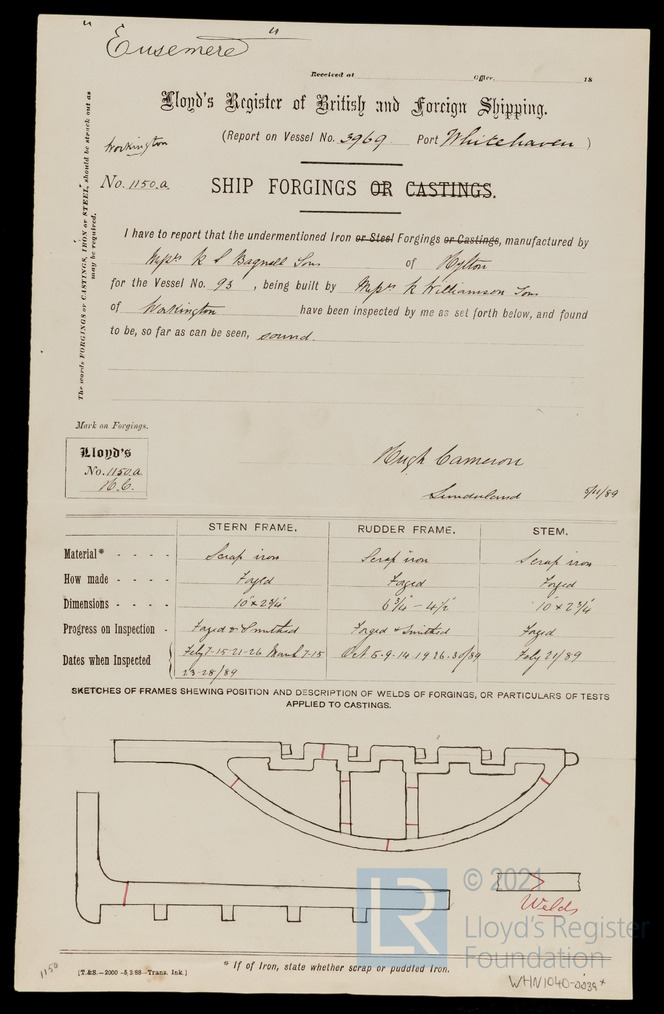 " Eusemere "
Received at Office, 18
Lloyd's Register of British and Foreign Shipping.
(Report on Vessel No. 3969 Port Whitehaven )
Workington
No. 1150.a SHIP FORGINGS OR CASTINGS.
The words FORGINGS or CASTINGS, IRON or STEEL, should be struck out as
may be required.
I have to report that the undermentioned Iron or Steel Forgings or Castings, manufactured by
Messrs R S Bagnall Sons of Hylton
for the Vessel No. 93, being built by Messrs R Williamson Son
of Workington have been inspected by me as set forth below, and found
to be, so far as can be seen, sound.
Mark on Forgings.
Lloyd's
No. 1150.a
H.C.
Hugh Cameron
Sunderland 5/11/89
STERN FRAME. RUDDER FRAME. STEM.
Material* - - - - Scrap iron Scrap iron Scrap iron
How made - - - - Forged Forged Forged
Dimensions - - - - 10 x 2 3/4 6 3/4 - 4 1/2 10 x 2 3/4
Progress on Inspection - Forged & Smithed Forged & Smithed Forged
Dates when Inspected Feby 7-15-21-26 March 7-15 Oct 5-9-14 19 26-30/89 Feby 21/89
23-28/89
SKETCHES OF FRAMES SHEWING POSITION AND DESCRIPTION OF WELDS OF FORGINGS, OR PARTICULARS OF TESTS
APPLIED TO CASTINGS.
Welds
LR
© 2021
Lloyd's Register
Foundation
* If of Iron, state whether scrap or puddled Iron.
1150
[T.&S.—2000—5,3,88—Trans. Ink.]
WHN1040-0039*